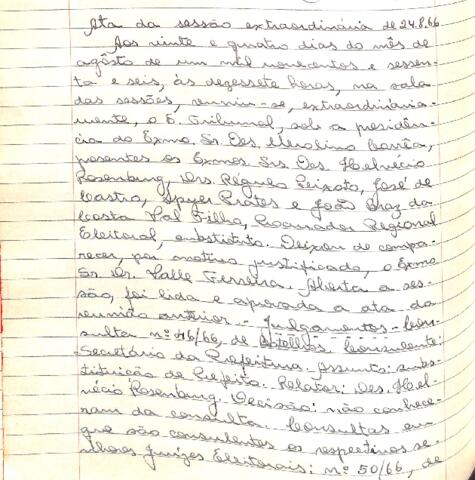 Ata da sessão extraordinária de 24.8.66
Aos vinte e quatro dias do mês de
agôsto de um mil novecentos e sessen-
ta e seis, às dezessete horas, na sala
das sessões, reuniu-se, extraordinària-
mente, o E. Tribunal, sob a presidên-
cia do Exmo. Sr. Des. Merolino Corrêa,
presentes os Exmos. Srs. Des. Helvécio
Rosenburg, Drs. Régulo Peixoto, José de
Castro, Spyer Prates e João Braz da
Costa Val Filho, Procurador Regional
Eleitoral, substituto. Deixou de compa-
recer, por motivo justificado, o Exmo
Sr. Dr. Valle Ferreira. Aberta a ses-
são, foi lida e aprovada a ata da
reunião anterior. - Julgamentos - Con-
sulta nº 46/66, de Botelhos. Consulente:
Secretário da Prefeitura. Assunto: subs-
tituição de Prefeito. Relator: Des. Hel-
vécio Rosenburg. Decisão: não conhece-
ram da consulta. Consultas em
que são consulentes os respectivos se-
nhores Juízes Eleitorais: nº 50/66, de